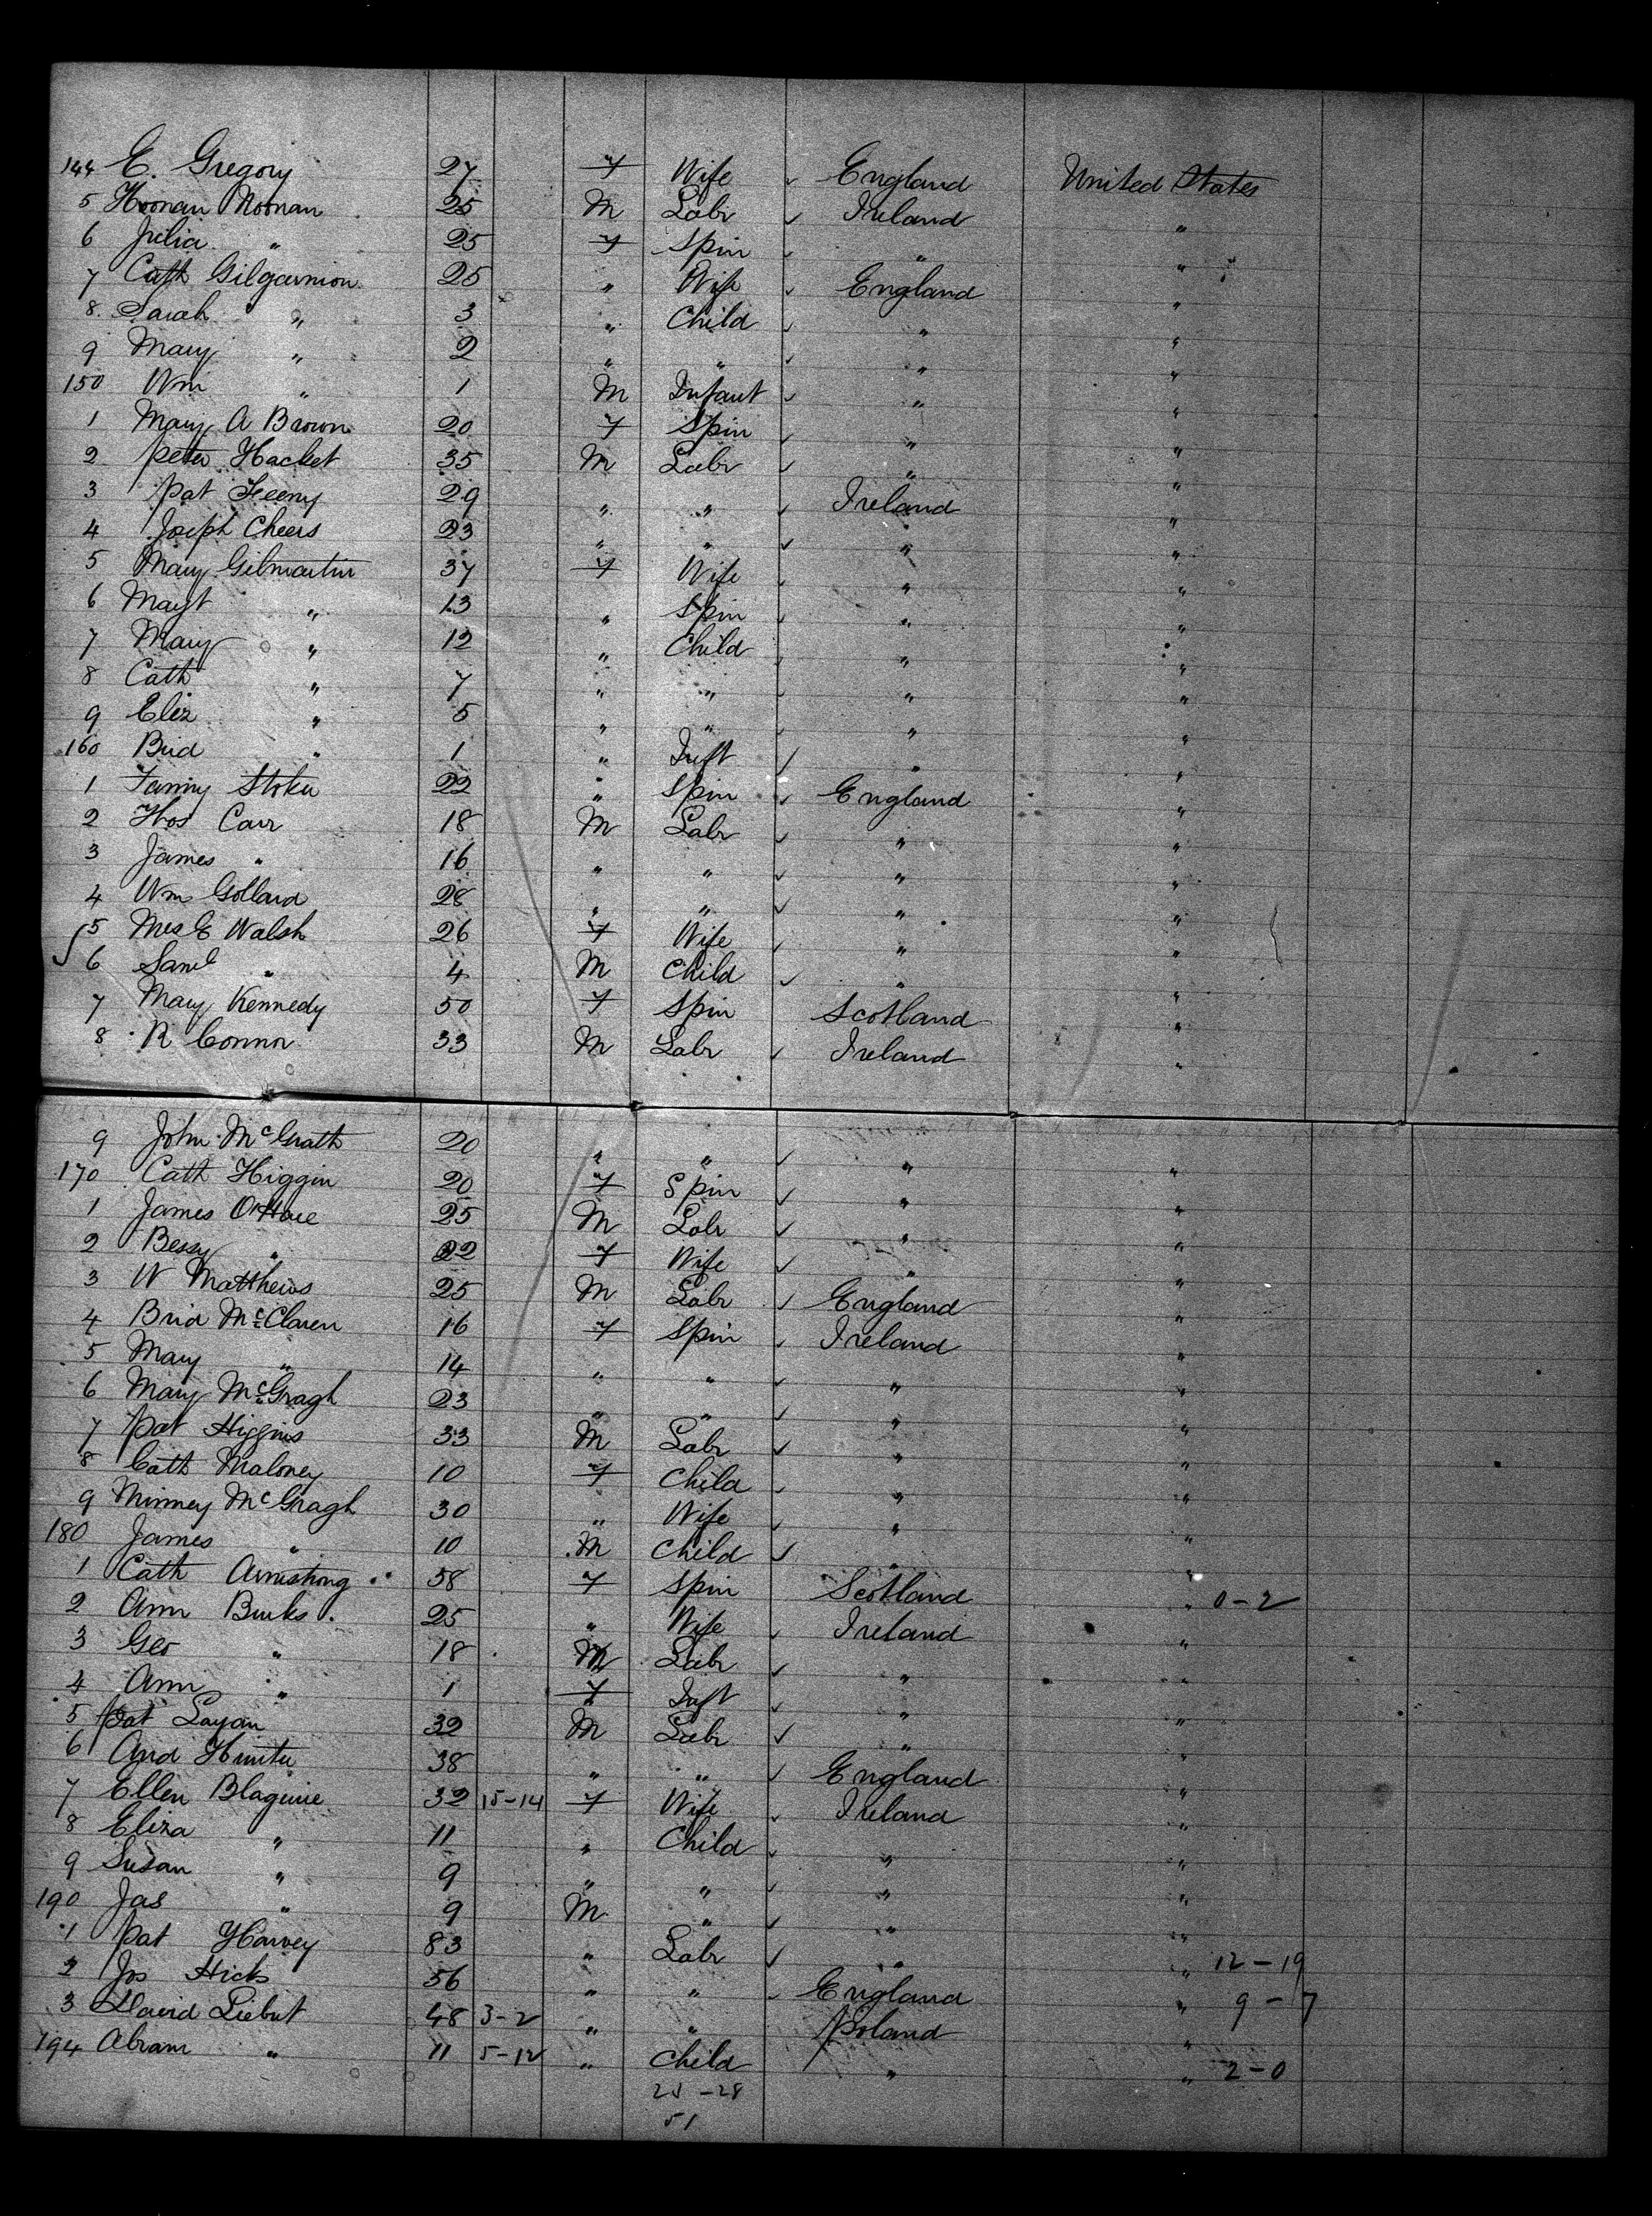 144 E. Gregory 27 F Wife ✓ England United States
5 Honnan Noonan 25 M Labr ✓ Ireland "
6 Julia " 25 F Spin ✓ " "
7 Cath Gilgarnion 25 " Wife ✓ England "
8. Sarah " 3 " Child ✓ " "
9 Mary " 2 " " ✓ " "
150 Wm " 1 M Infant ✓ " "
1 Mary A Brown 20 F Spin ✓ " "
2 Peter Hacket 35 M Labr ✓ " "
3 Pat Feeny 29 " " ✓ Ireland "
4 Joseph Cheers 23 " " ✓ " "
5 Mary Gilmartin 37 F Wife ✓ " "
6 Magt " 13 " Spin ✓ " "
7 Mary " 12 " Child ✓ " "
8 Cath " 7 " " ✓ " "
9 Eliz " 5 " " ✓ " "
160 Brid " 1 " Inft ✓ " "
1 Fanny Stoker 22 " Spin ✓ England "
2 Thos Carr 18 M Labr ✓ " "
3 James " 16 " " ✓ " "
4 Wm Gollard 28 " " ✓ " "
5 Mrs E Walsh 26 F Wife ✓ " "
6 Saml " 4 M Child ✓ " "
7 Mary Kennedy 50 F Spin Scotland "
8 R Connor 33 M Labr ✓ Ireland "
9 John McGrath 20 " " ✓ " "
170 Cath Higgin 20 F Spin ✓ " "
1 James O'Hare 25 M Labr ✓ " "
2 Bessy " 22 F Wife ✓ " "
3 W Matthews 25 M Labr ✓ England "
4 Brid McClaren 16 F Spin ✓ Ireland "
5 Mary " 14 " " ✓ " "
6 Mary McGragh 23 " " ✓ " "
7 Pat Higgins 33 M Labr ✓ " "
8 Cath Maloney 10 F Child ✓ " "
9 Minney McGragh 30 " Wife ✓ " "
180 James " 10 M Child ✓ " "
1 Cath Armstrong 58 F Spin Scotland " 0-2
2 Ann Burks. 25 " Wife ✓ Ireland "
3 Geo " 18 M Labr ✓ " "
4 Ann " 1 F Inft ✓ " "
5 Pat Layan 32 M Labr ✓ " "
6 And Hunter 38 " " ✓ England "
7 Ellen Blaguire 32 15-14 F Wife ✓ Ireland "
8 Eliza " 11 " Child ✓ " "
9 Susan " 9 " " ✓ " "
190 Jas " 9 M " ✓ " "
1 Pat Harvey 83 " Labr ✓ " " 12-19
2 Jos Hicks 56 " " ✓ England " 9-7
3 David Liebut 48 3-2 " " Poland "
194 Abram " 11 5-12 " Child " " 2-0
25-28
51